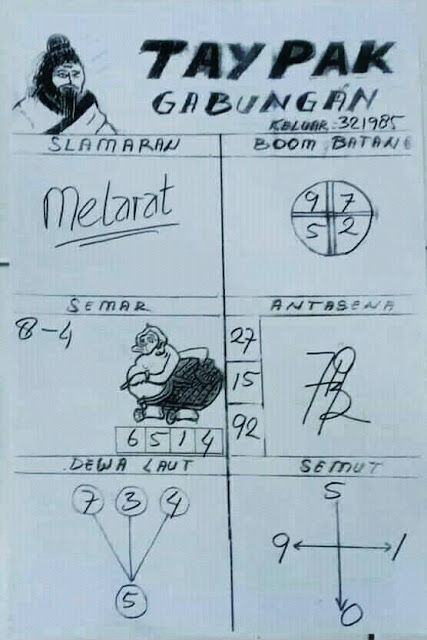 TAY PAK
GABUNGAN
KELUAR: 321985
SLAMARAN
BOOM BATANG
Melarat
9 7
5 2
SEMAR
ANTASENA
8-4
27
15
92
6 5 1 4
DEWA LAUT
SEMUT
7 3 4
5
5
9 1
0